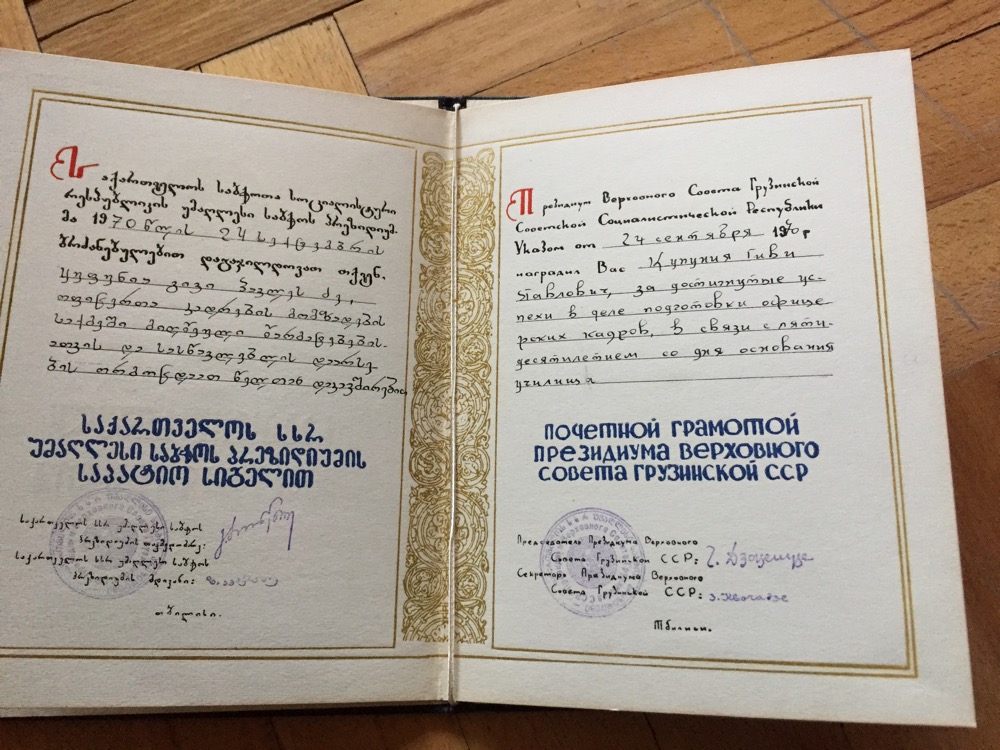 საქართველოს საბჭოთა სოციალისტური
რესპუბლიკის უმაღლესი საბჭოს პრეზიდიუმ-
მა 1970 წლის 24 სექტემბრის
ბრძანებულებით დაგაჯილდოვათ თქვენ,
გივი პავლეს ძე,
ოფიცერთა კადრების მომზადების
საქმეში მიღწეული წარმატებების-
ათვის და სასწავლებლის დაარსე-
ბის ორმოცდაათ წელთან დაკავშირებით
საქართველოს სსრ
უმაღლესი საბჭოს პრეზიდიუმის
საპატიო სიგელით
საქართველოს სსრ უმაღლესი საბჭოს
პრეზიდიუმის თავმჯდომარე:
საქართველოს სსრ უმაღლესი საბჭოს
პრეზიდიუმის მდივანი:
თბილისი.
Президиум Верховного Совета Грузинской
Советской Социалистической Республики
Указом от 24 сентября 1970 г
наградил Вас Купуния Гиви
Павлович, за достигнутые ус-
пехи в деле подготовки офице-
рских кадров, в связи с пяти-
десятилетием со дня основания
училища
ПОЧЕТНОЙ ГРАМОТОЙ
ПРЕЗИДИУМА ВЕРХОВНОГО
СОВЕТА ГРУЗИНСКОЙ ССР
Председатель Президиума Верховного
Совета Грузинской ССР: Г. Дзоценидзе
Секретарь Президиума Верховного
Совета Грузинской ССР: З. Квачадзе
Тбилиси.